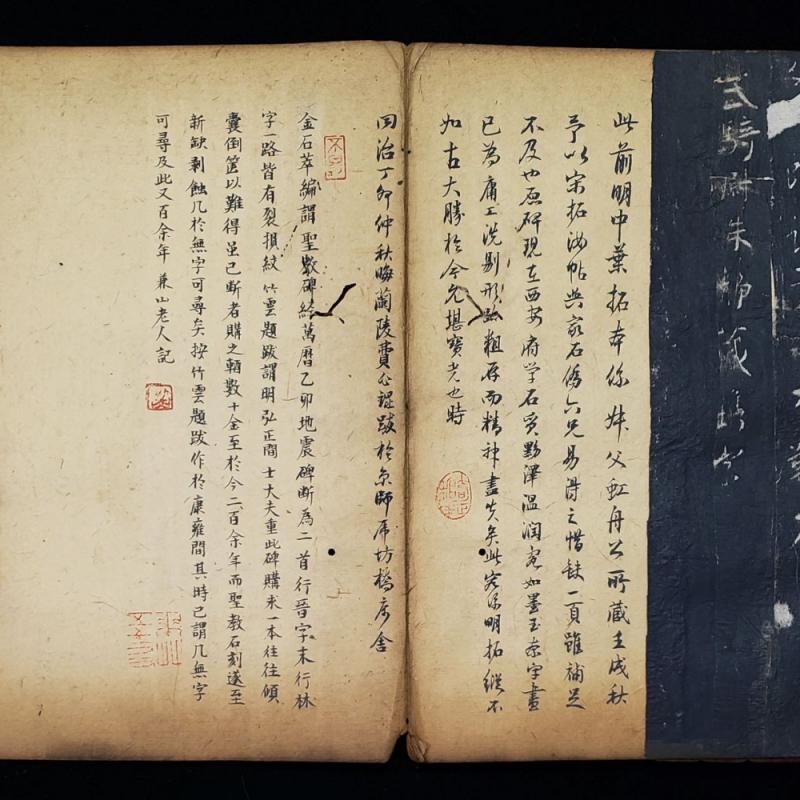 此前明中葉拓本係舛父虹舟公所藏壬戌秋
予以宋拓海帖與家石僑六兄易得之惜缺一頁雖補足
不及也原碑現在西安府学石質黟澤温润宛如墨玉柰字畫
已為庸工洗剔形跡粗存而精神盡失矣此宛係明拓縱不
如古大勝於今允堪寶光也時
同治丁卯仲秋晦蘭陵費公錕跋於京師虎坊橋京舍
金石萃編謂聖教碑經萬曆乙卯地震碑断為二首行晉字末行林
字一路皆有裂損紋竹雲題跋謂明弘正間士大夫重此碑購求一本往往傾
囊倒箧以難得虽已断者購之輒數十金至於今二百余年而聖教石刻遂至
新缺剥蝕几於無字可尋矣按竹雲題跋作於康雍間其時已謂几無字
可尋及此又百余年 兼山老人記